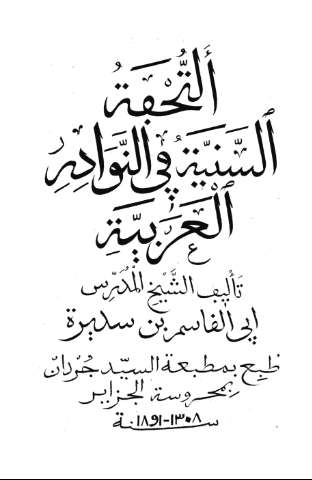 ألتُّحْفَةُ
السَّنِيَّةُ فِي النَّوَادِرِ
الْعَرَبِيَّةِ
تَأليف الشَّيْخ المُدَرّس
ابي القاسم بن سديرة
طُبِعَ بمطبعة السيّد جُرْدان
بِمحروسة الجزاير
سنة ١٣٠٨-١٨٩١